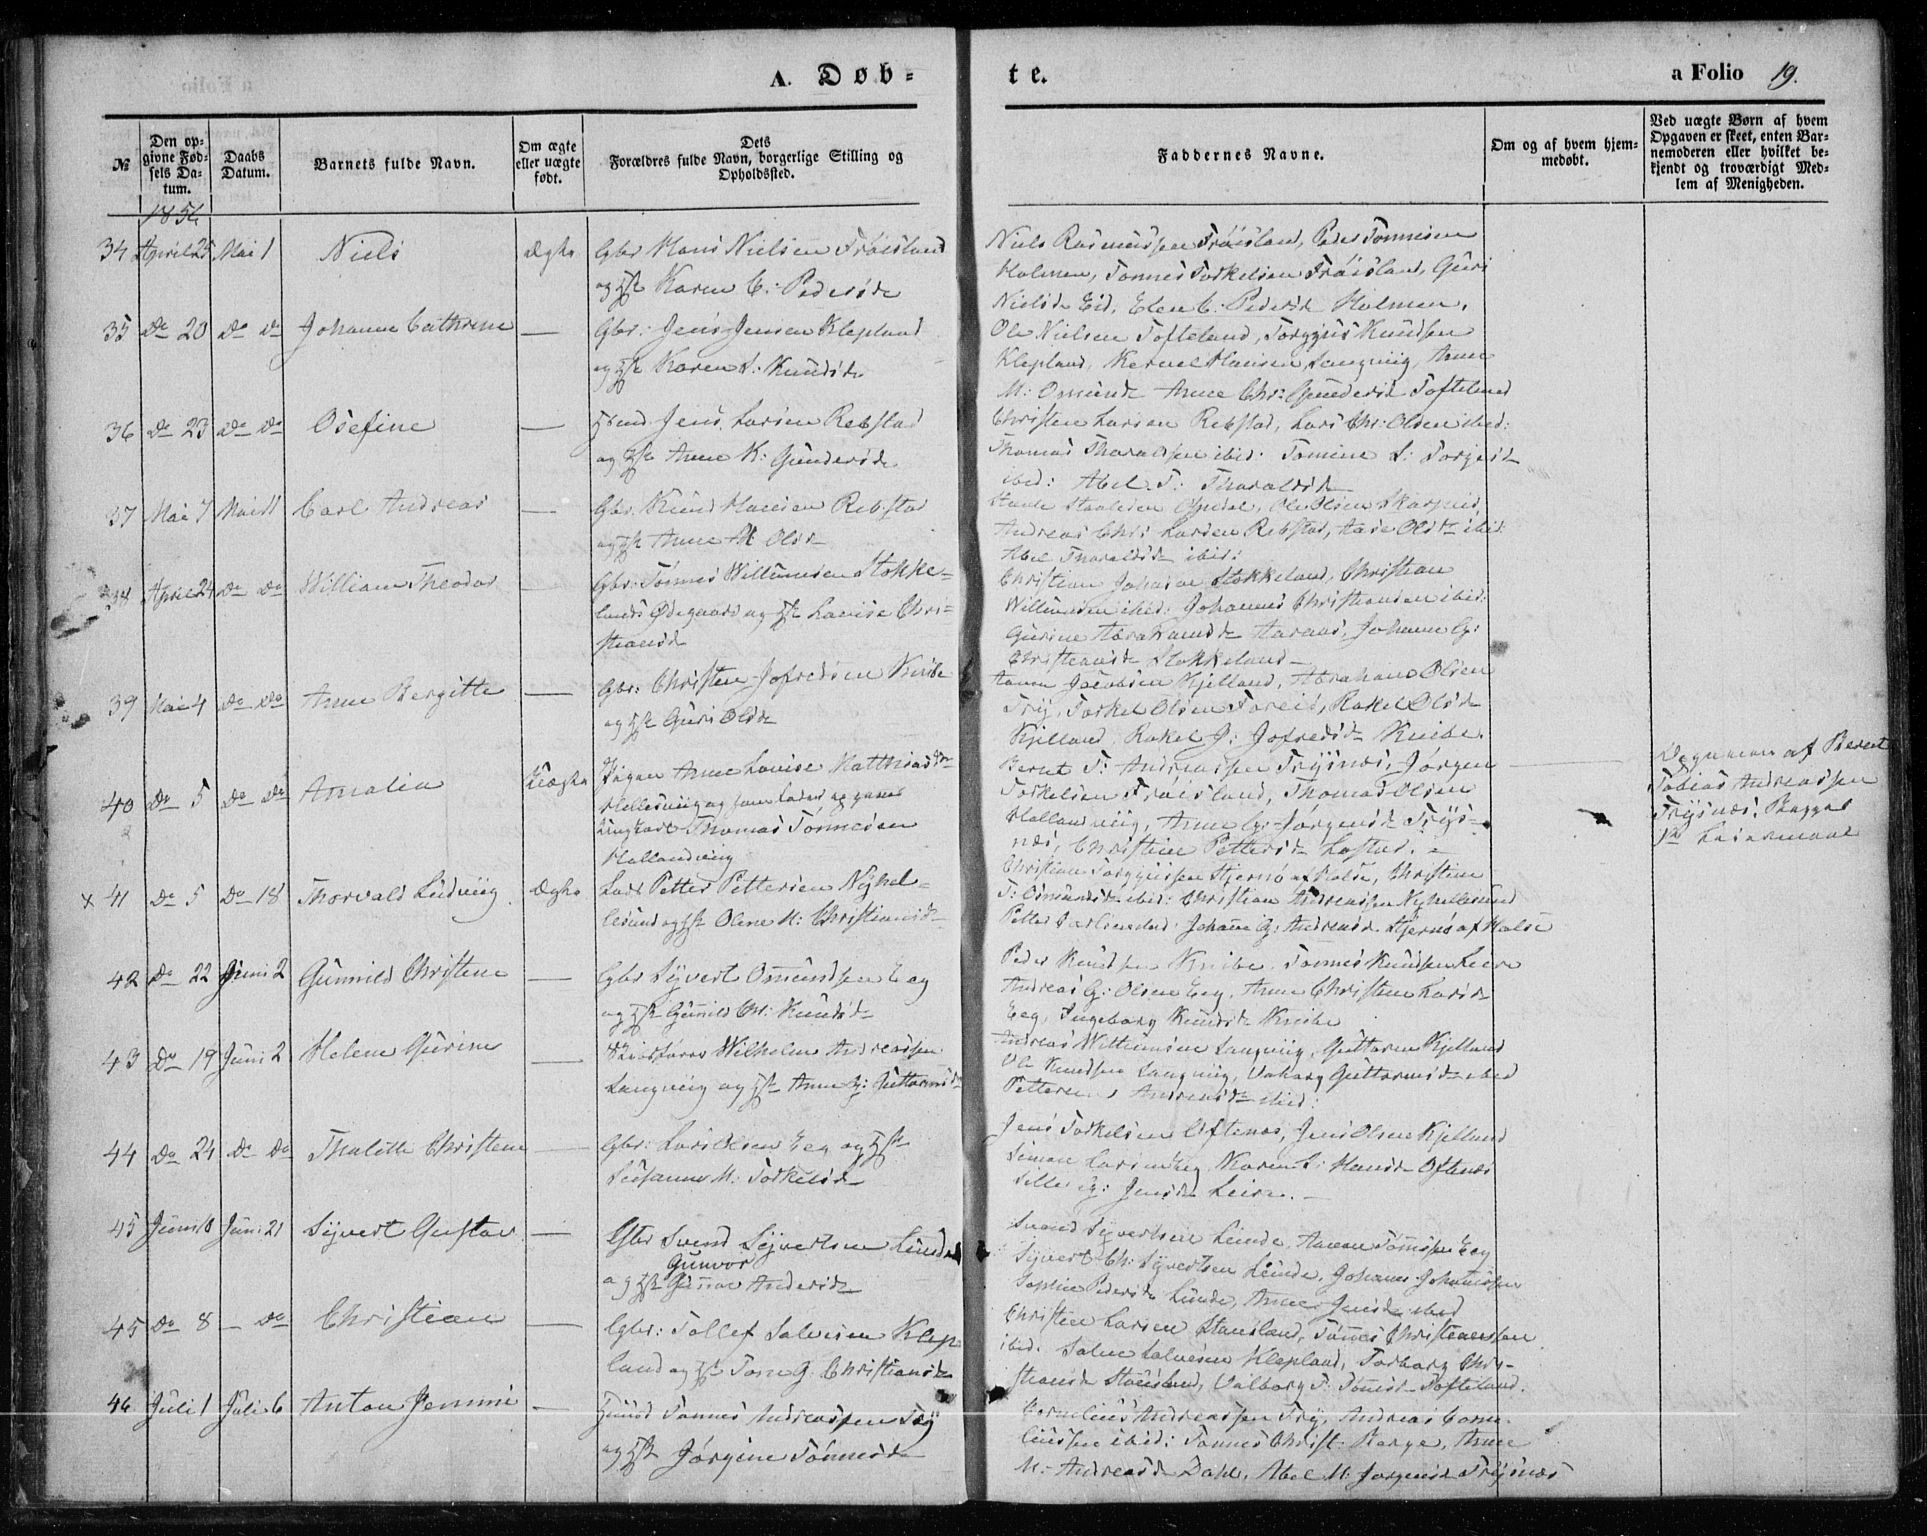 A. Døb=
te.
a Folio 19.
№
Den op-
givne Fød-
sels Da-
tum.
Daabs
Datum.
Barnets fulde Navn.
Om ægte
eller uægte
født.
Dets
Forældres fulde Navn, borgerlige Stilling og
Opholdssted.
Faddernes Navne.
Om og af hvem hjem-
medøbt.
Ved uægte Børn af hvem
Opgaven er skeet, enten Bar-
nemoderen eller hvilket be-
kjendt og troværdigt Med-
lem af Menigheden.
1856
34 April 25 Mai 1 Niels Ægte Gbr Hans Nielsen Frøisland
og H Karen C: Pedersd.
Niels Rasmussen Frøisland, Peder Tønnesen
Holmen, Tønnes Torkelsen Frøisland, Guri
Nielsd. Eid, Elen C. Pedersd. Holmen.
35 Do 20 Do Do Johanne Cathrine — Gbr: Jens Jensen Klepland
og H Karen S: Knudsd.
Ole Nielsen Tofteland, Torgius Knudsen
Klepland, Hansen Langviig, Anne
M: Osmunds. Anne Chr: Gundersd. Tofteland
36 Do 23 Do Do Osefine — Hmd Jens Larsen Rebstad
og H Anne K: Gundersd.
Christen Larsen Rebstad, Lars Chr: Olsen ibid:
Thomas Tharaldsen ibid: Tomine S: Torjesd.
ibid: Abel T: Tharaldsd.
37 Mai 7 Mai 11 Carl Andreas — Gbr. Knud Hansen Rebstad
og H Anne M Olsd.
Staalesen Olsen
Andreas Chr: Larsen Rebstad, Aase Olsd. ibid:
Abel Tharaldsd. ibid:
38 April 24 Do Do William Theodor — Gbr: Tønnes Willumsen Stokke-
lands Ødegaard og H Lovise Chri-
stiansd.
Christian Johnsen Stokkeland, Christian
Willumsen ibid: Johannes Christiansen ibid:
Gurine Abrahamsd. Aaraas, Johanne G:
Christiansd. Stokkeland
39 Mai 4 Do Do Anne Bergitte — Gbr: Christen Jofredsen Knibe
og H Guri Olsd.
Aanen Jacobsen Kjelland, Abraham Olsen
Try, Torkel Olsen Foreid, Rakel Olsd.
Kjelland, Rakel J: Jofredsd. Knibe.
40 Do 5 Do Do Amalia Uægte Pigen Anne Lovise Matthiasd.
Hellesviig og
Ungkarl Thomas Tønnesen
Hallandviig
Bernt T: Andreassen Trysnæs, Jørgen
Torkelsen Frøisland, Thomas Olsen
Hallandviig, Anne G: Jørgensd. Trys-
næs, Christine Pettersd. Lastad.
Opgaven af Bernt
Tobias Andreassen
Trysnæs,
Leiermaal
x 41 Do 5 Do 18 Thorvald Ludviig Ægte Lods Petter Pettersen Nyhel-
lesund og H Olene M: Christiansd.
Christian Torgiussen Stjernø af Halse, Christine
T: Osmundsd. ibid: Christian Andreassen Nyhellesund
Petter ibid: Johanne G: Andreasd. Stjernø af Halse
42 Do 22 Juni 2 Gunnild Christene — Gbr Syvert Osmundsen Eeg
og H Gunnild Chr: Knudsd.
Peder Knudsen Knibe. Tønnes Knudsen Leire
Andreas G: Olsen Eeg, Anne Christine Larsd.
Eeg, Ingeborg Knudsd. Knibe
43 Do 19 Juni 2 Helene Gurine — Skibsfører Wilhelm Andreassen
Langviig og H Anne G: Guttormsd.
Andreas Willumsen Langviig, Guttorm Kjelland
Ole Knudsen Langviig, Valborg Guttormsd. ibid
Andreasd. ibid:
44 Do 24 Do Do Thalette Christene — Gbr: Lars Olsen Eeg og H
Susanne M: Torkelsd.
Jens Torkelsen Oftenæs, Jens Olsen Kjelland
Simon Larsen Eeg, Karen S: Hansd. Oftenæs
Sille G: Jensd. Leire.
45 Juni 10 Juni 21 Syvert Gustav — Gbr Svend Syvertsen Lunde
Gunvor
og H Gunvor Andersd.
Svend Syvertsen Lunde, Aanen Tønnessen Eeg
Syvert Chr: Syvertsen Lunde, Johannes Johannessen
Sophie Pedersd. Lunde, Anne Jensd. ibid
45 Do 8 — Do Christian — Gbr: Tollef Salvesen Klep
land og H Tone G. Christiansd.
Christen Larsen Stausland, Tønnes Christensen
ibid. Salve Salvesen Klepland, Torborg Chri-
stiansd. Stausland, Valborg T: Tønnesd. Tofteland.
46 Juli 1 Juli 6 Anton Jemmi — Hmd Tønnes Andreassen Try
og H Jørgine Tønnesd.
Cornelius Andreassen Try, Andreas Corne-
liussen ibid: Tønnes Christ: Berge, Anne
M: Andreasd. Dahl, Abel M: Jørgensd. Trysnæs